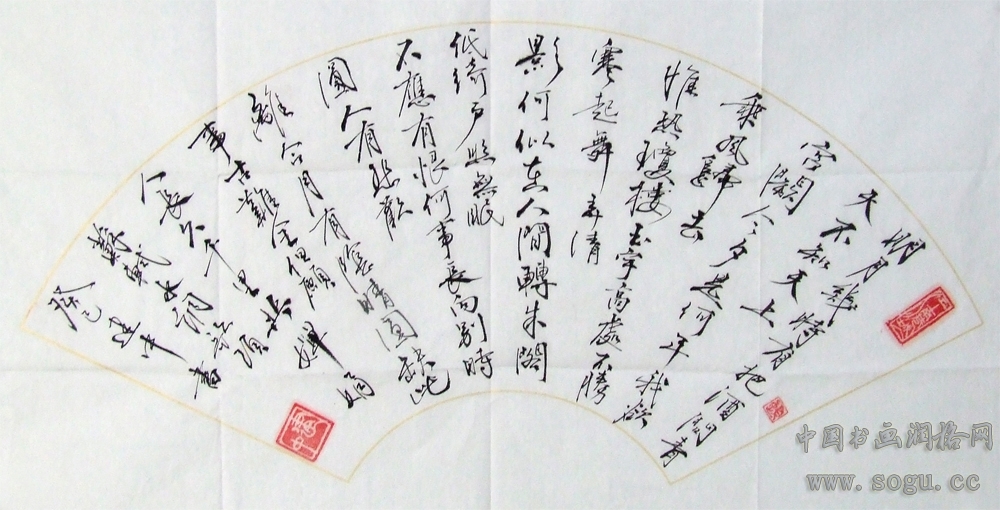 明月幾時有把酒問青
天不知天上
宮闕今夕是何年我欲
乘風歸去
惟恐瓊樓玉宇高處不勝
寒起舞弄清
影何似在人間轉朱閣
低綺戶照無眠
不應有恨何事長向別時
圓人有悲歡
離合月有陰晴圓缺此
事古難全但願
人長久千里共嬋娟
蘇軾水調歌頭
癸巳建中書
中国书画润格网
www.sogu.cc